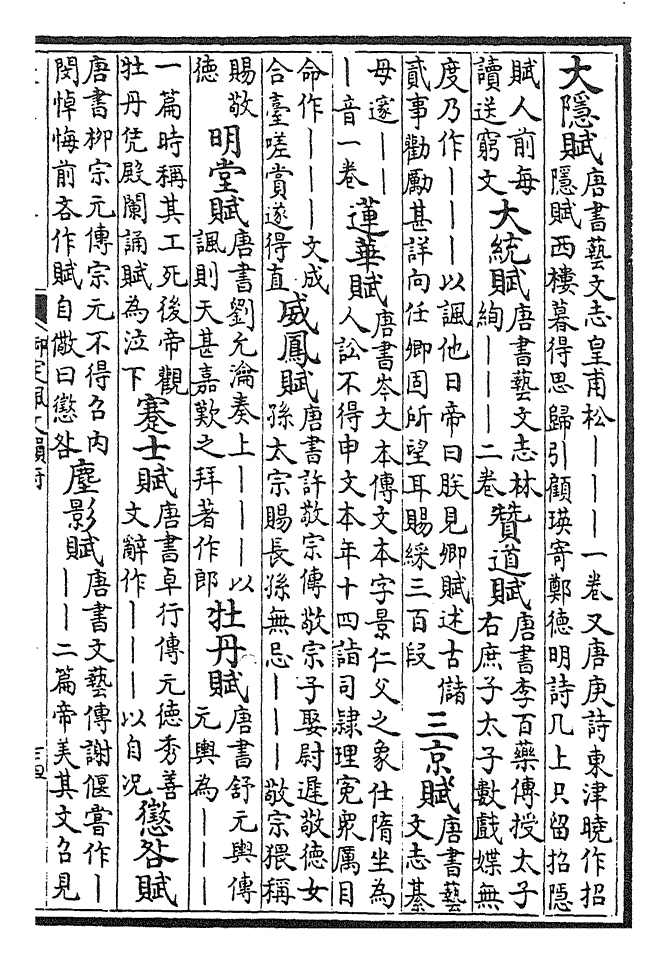 大隱賦唐書藝文志皇甫松丨丨丨一卷又唐庚詩東津曉作招隱賦西樓暮得思歸引顧瑛寄鄭德明詩几上只留招隱
賦人前每讀送窮文大統賦唐書藝文志林絢丨丨丨二卷贊道賦唐書李百藥傳授太子右庶子太子數戲媟無
度乃作丨丨丨以諷他日帝曰朕見卿賦述古儲貳事勸勵甚詳向任卿固所望耳賜綵三百段三京賦唐書藝文志綦
毋邃丨丨丨音一卷蓮華賦唐書岑文本傳文本字景仁父之象仕隋坐為人訟不得申文本年十四詣司隸理寃衆属目
命作丨丨丨文成合臺嗟賞遂得直威鳳賦唐書許敬宗傳敬宗子娶尉遲敬德女孫太宗賜長孫無忌丨丨丨敬宗猥稱
賜敬德明堂賦唐書劉允濟奏上丨丨丨以諷則天甚嘉歎之拜著作郎牡丹賦唐書舒元輿傳元輿為丨丨丨
一篇時稱其工死後帝觀牡丹凭殿闌誦賦為泣下蹇士賦唐書卓行傳元德秀善文辭作丨丨丨以自况懲咎賦
唐書柳宗元傳宗元不得召内閔悼悔前吝作賦自儆曰懲咎塵影賦唐書文藝傳謝偃嘗作丨丨丨二篇帝美其文召見